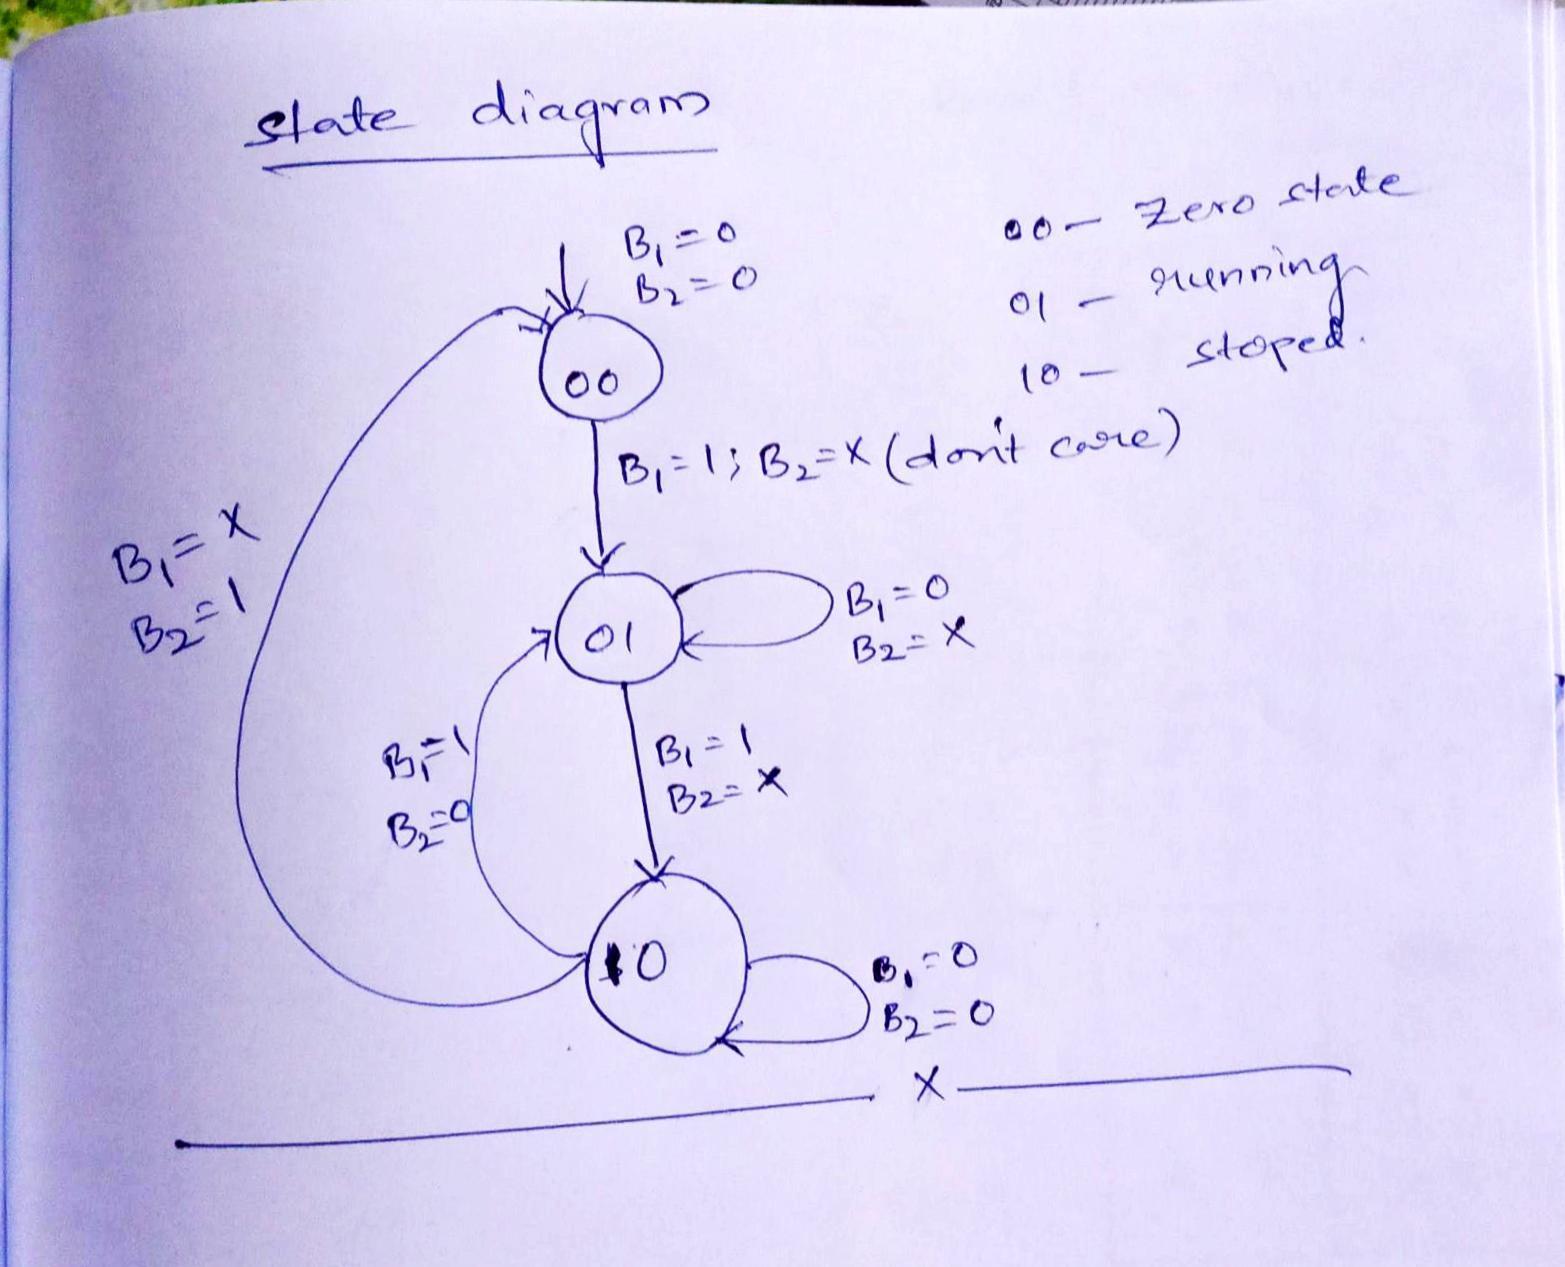 state diagram
00 - Zero state
01 - running
10 - stoped.
B₁=0
B₂=0
00
B₁=1; B₂=X (don't care)
B₁=X
B₂=1
01
B₁=0
B₂=X
B₁=1
B₂=0
B₁=1
B₂=X
10
B₁=0
B₂=0
X